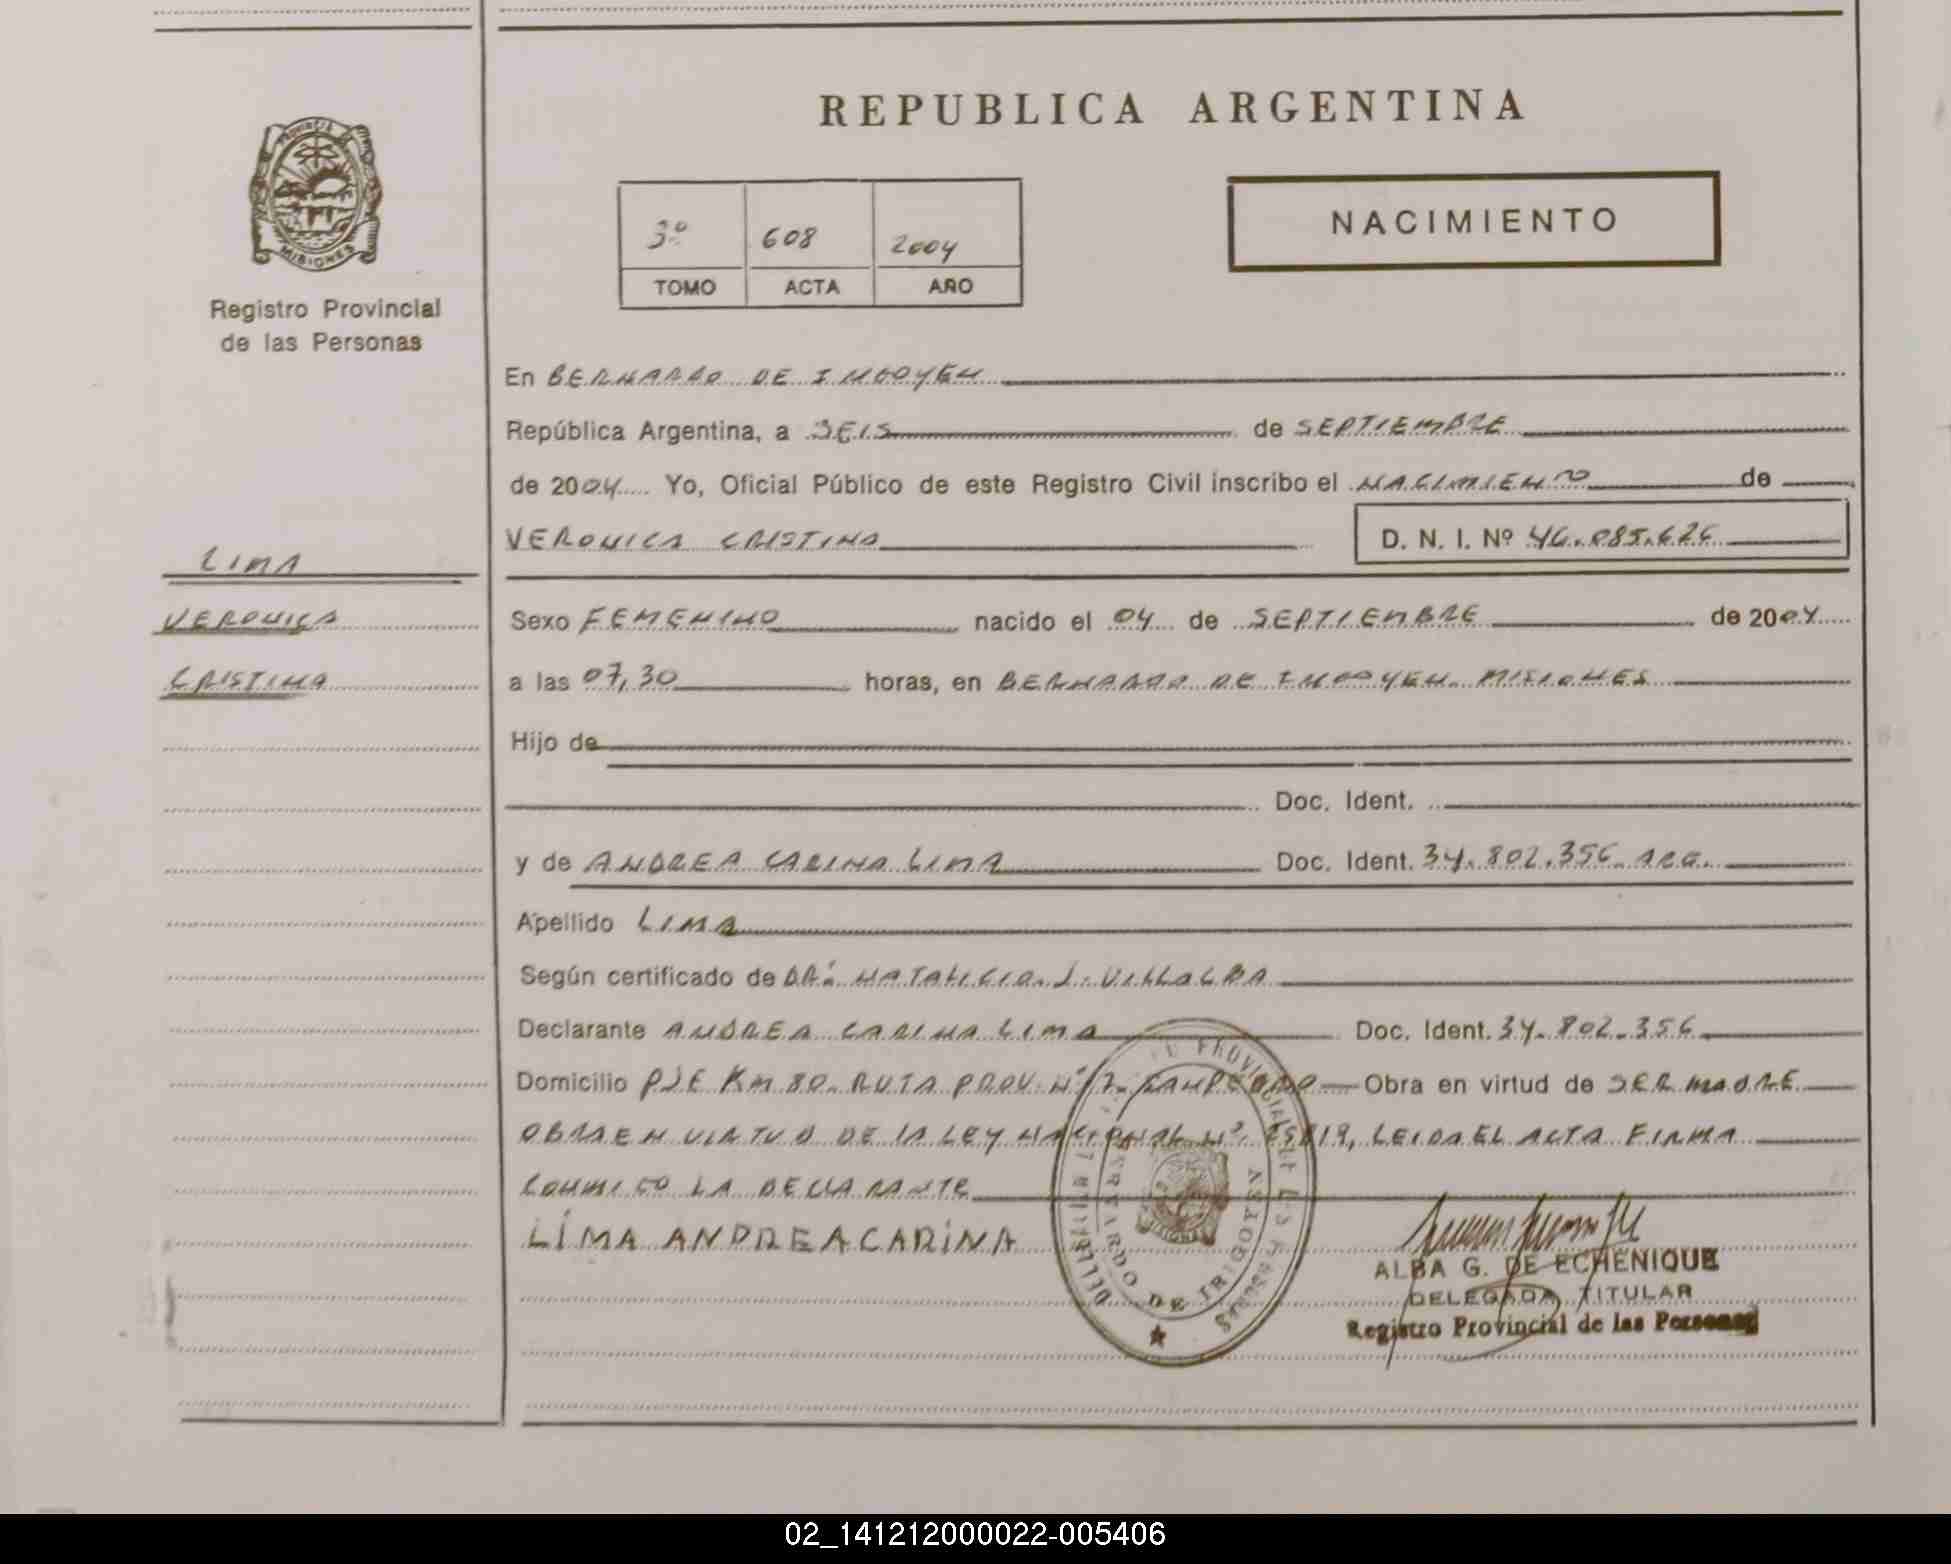 REPUBLICA ARGENTINA
PROVINCIA
MISIONES
Registro Provincial
de las Personas
3º 608 2004
TOMO ACTA AÑO
NACIMIENTO
En BERNARDO DE IRIGOYEN
República Argentina, a SEIS de SEPTIEMBRE
de 2004 Yo, Oficial Público de este Registro Civil inscribo el NACIMIENTO de
VERONICA CRISTINA D. N. I. Nº 46.085.626
LIMA
VERONICA
CRISTINA
Sexo FEMENINO nacido el 04 de SEPTIEMBRE de 2004
a las 07,30 horas, en BERNARDO DE IRIGOYEN. MISIONES
Hijo de
Doc. Ident.
y de ANDREA CARINA LIMA Doc. Ident. 34.802.356 ARG.
Apellido LIMA
Según certificado de DR. NATALICIO J. VILLALBA
Declarante ANDREA CARINA LIMA Doc. Ident. 34.802.356
Domicilio PJE KM 80. RUTA PROV. Nº 17. Obra en virtud de SER MADRE
OBRA EN VIRTUD DE LA LEY NACIONAL Nº 25819, LEIDA EL ACTA FIRMA
CONMIGO LA DECLARANTE
LIMA ANDREA CARINA
BERNARDO DE IRIGOYEN
ALBA G. DE ECHENIQUE
DELEGADA TITULAR
Registro Provincial de las Personas
02_141212000022-005406